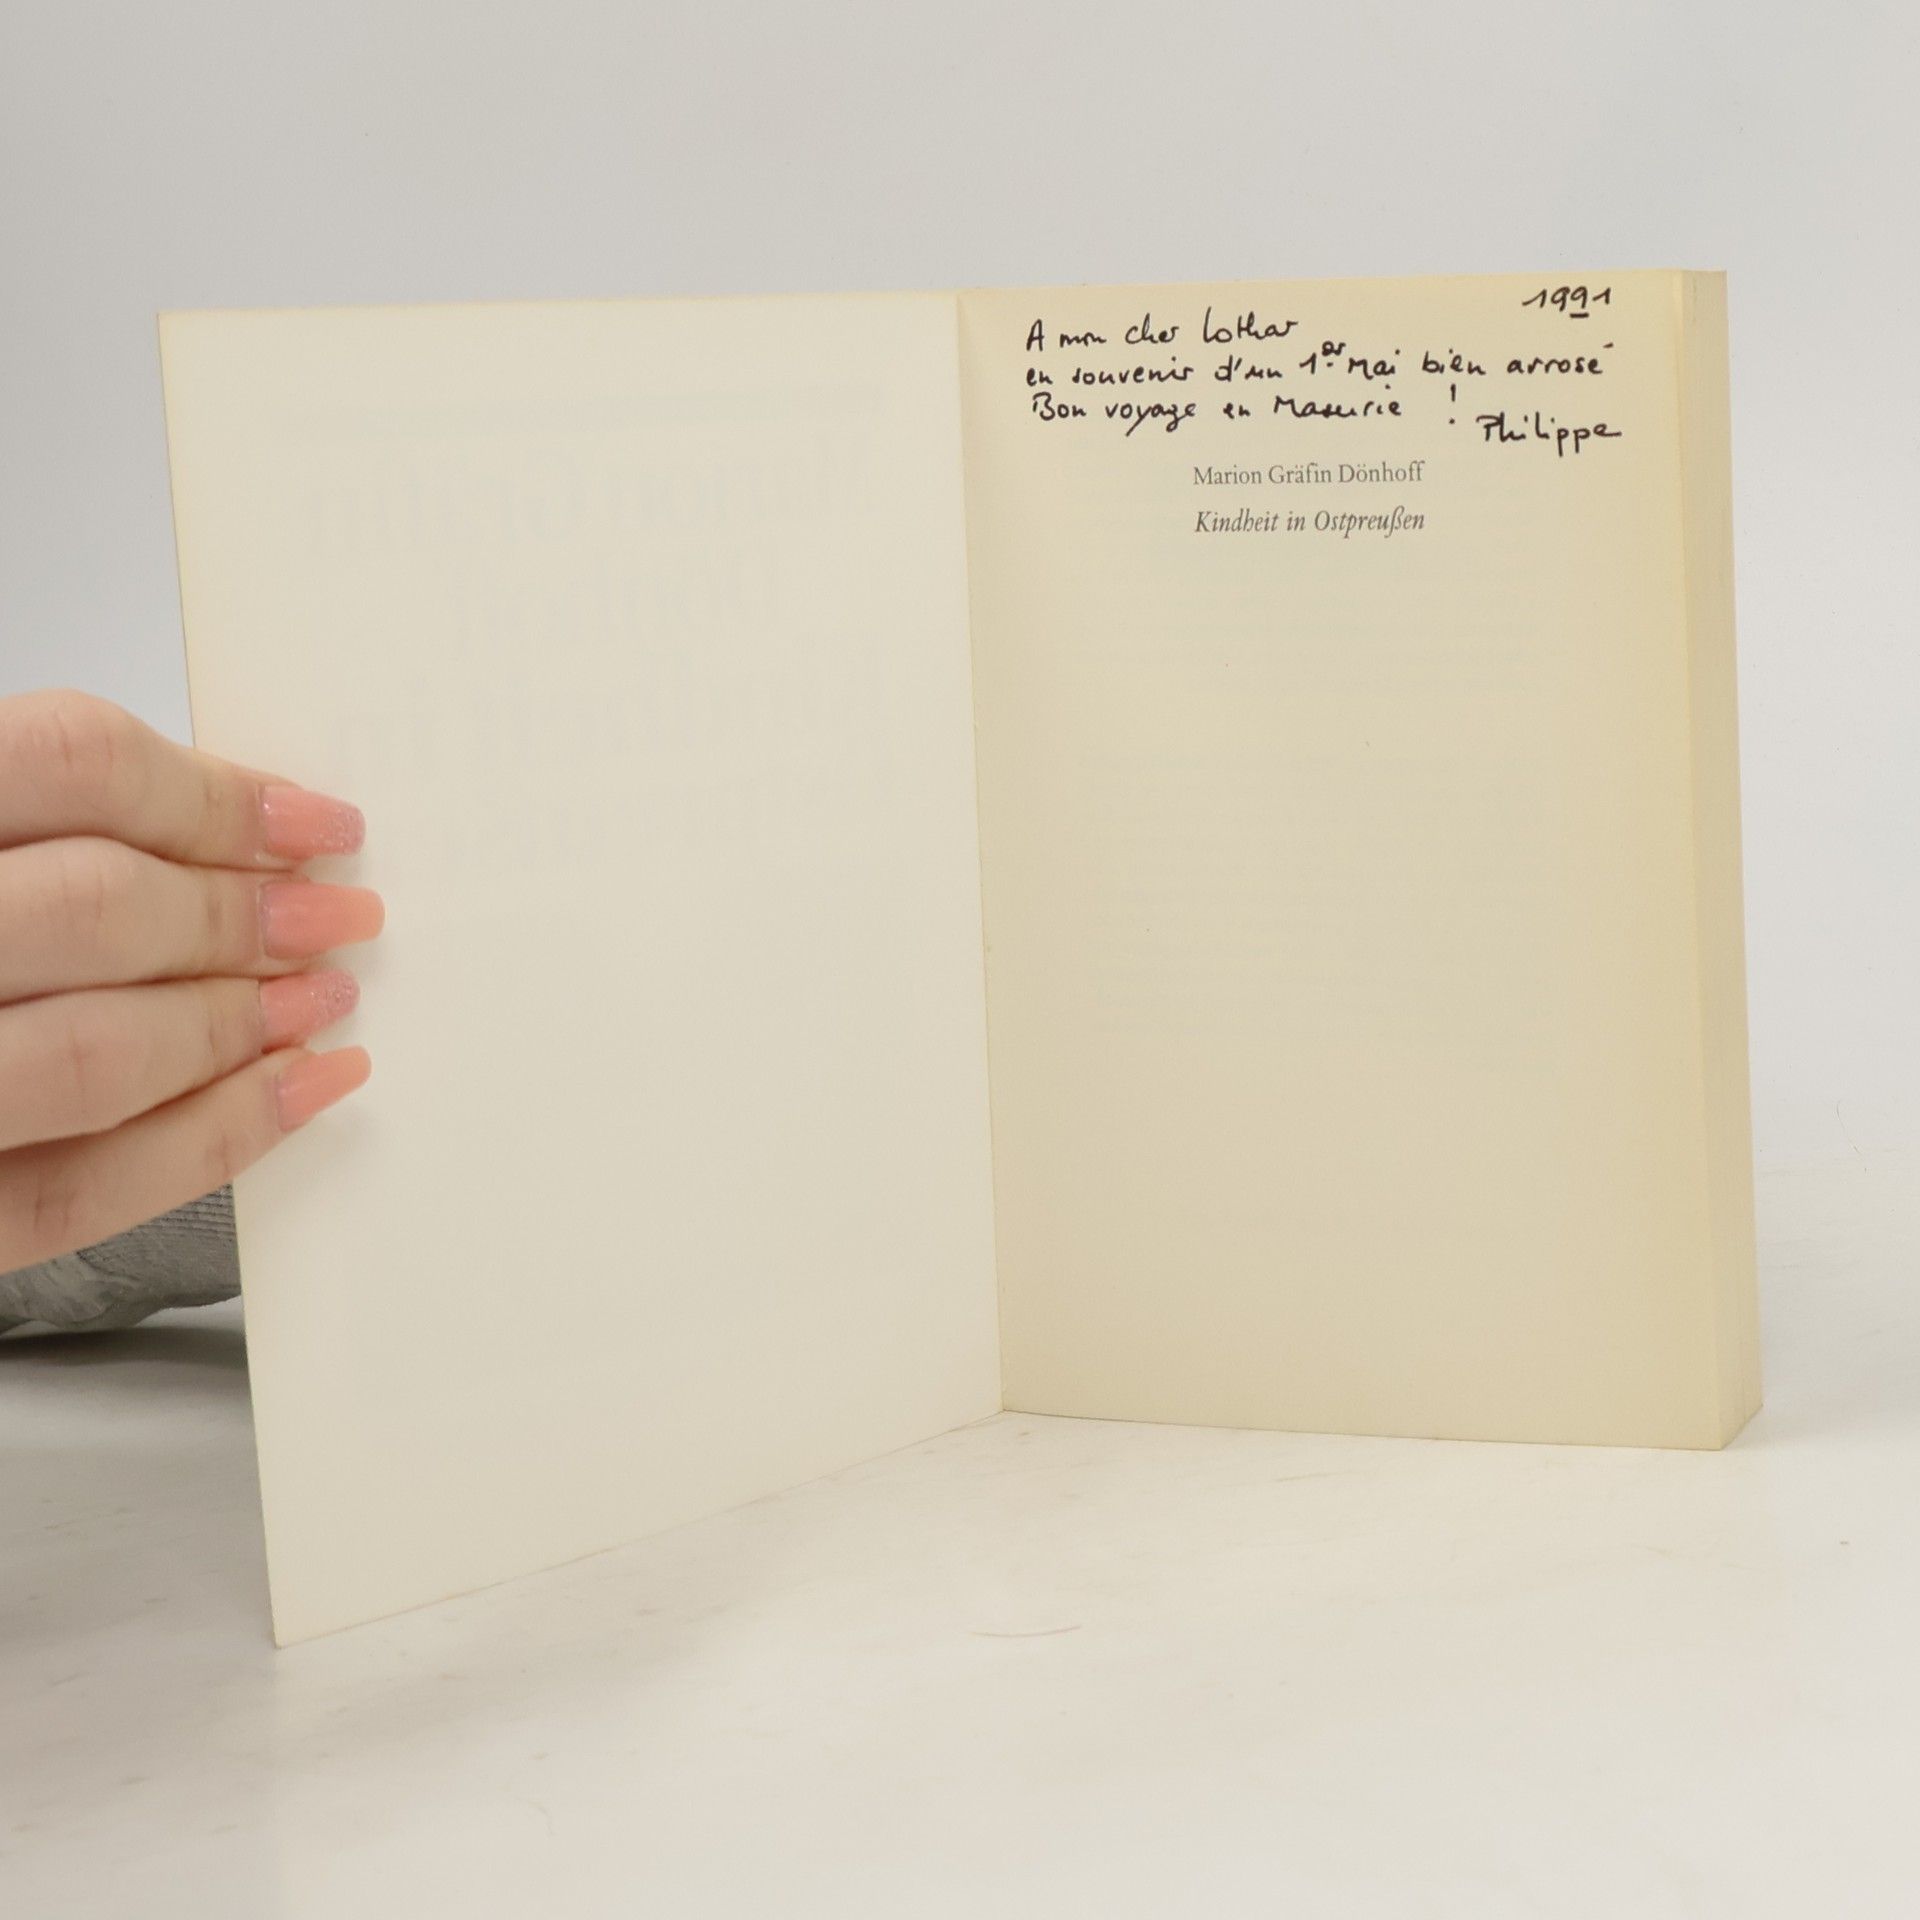 1991
A mon cher Lothar
en souvenir d'un 1er Mai bien arrosé
Bon voyage en Masurie !
Philippe
Marion Gräfin Dönhoff
Kindheit in Ostpreußen